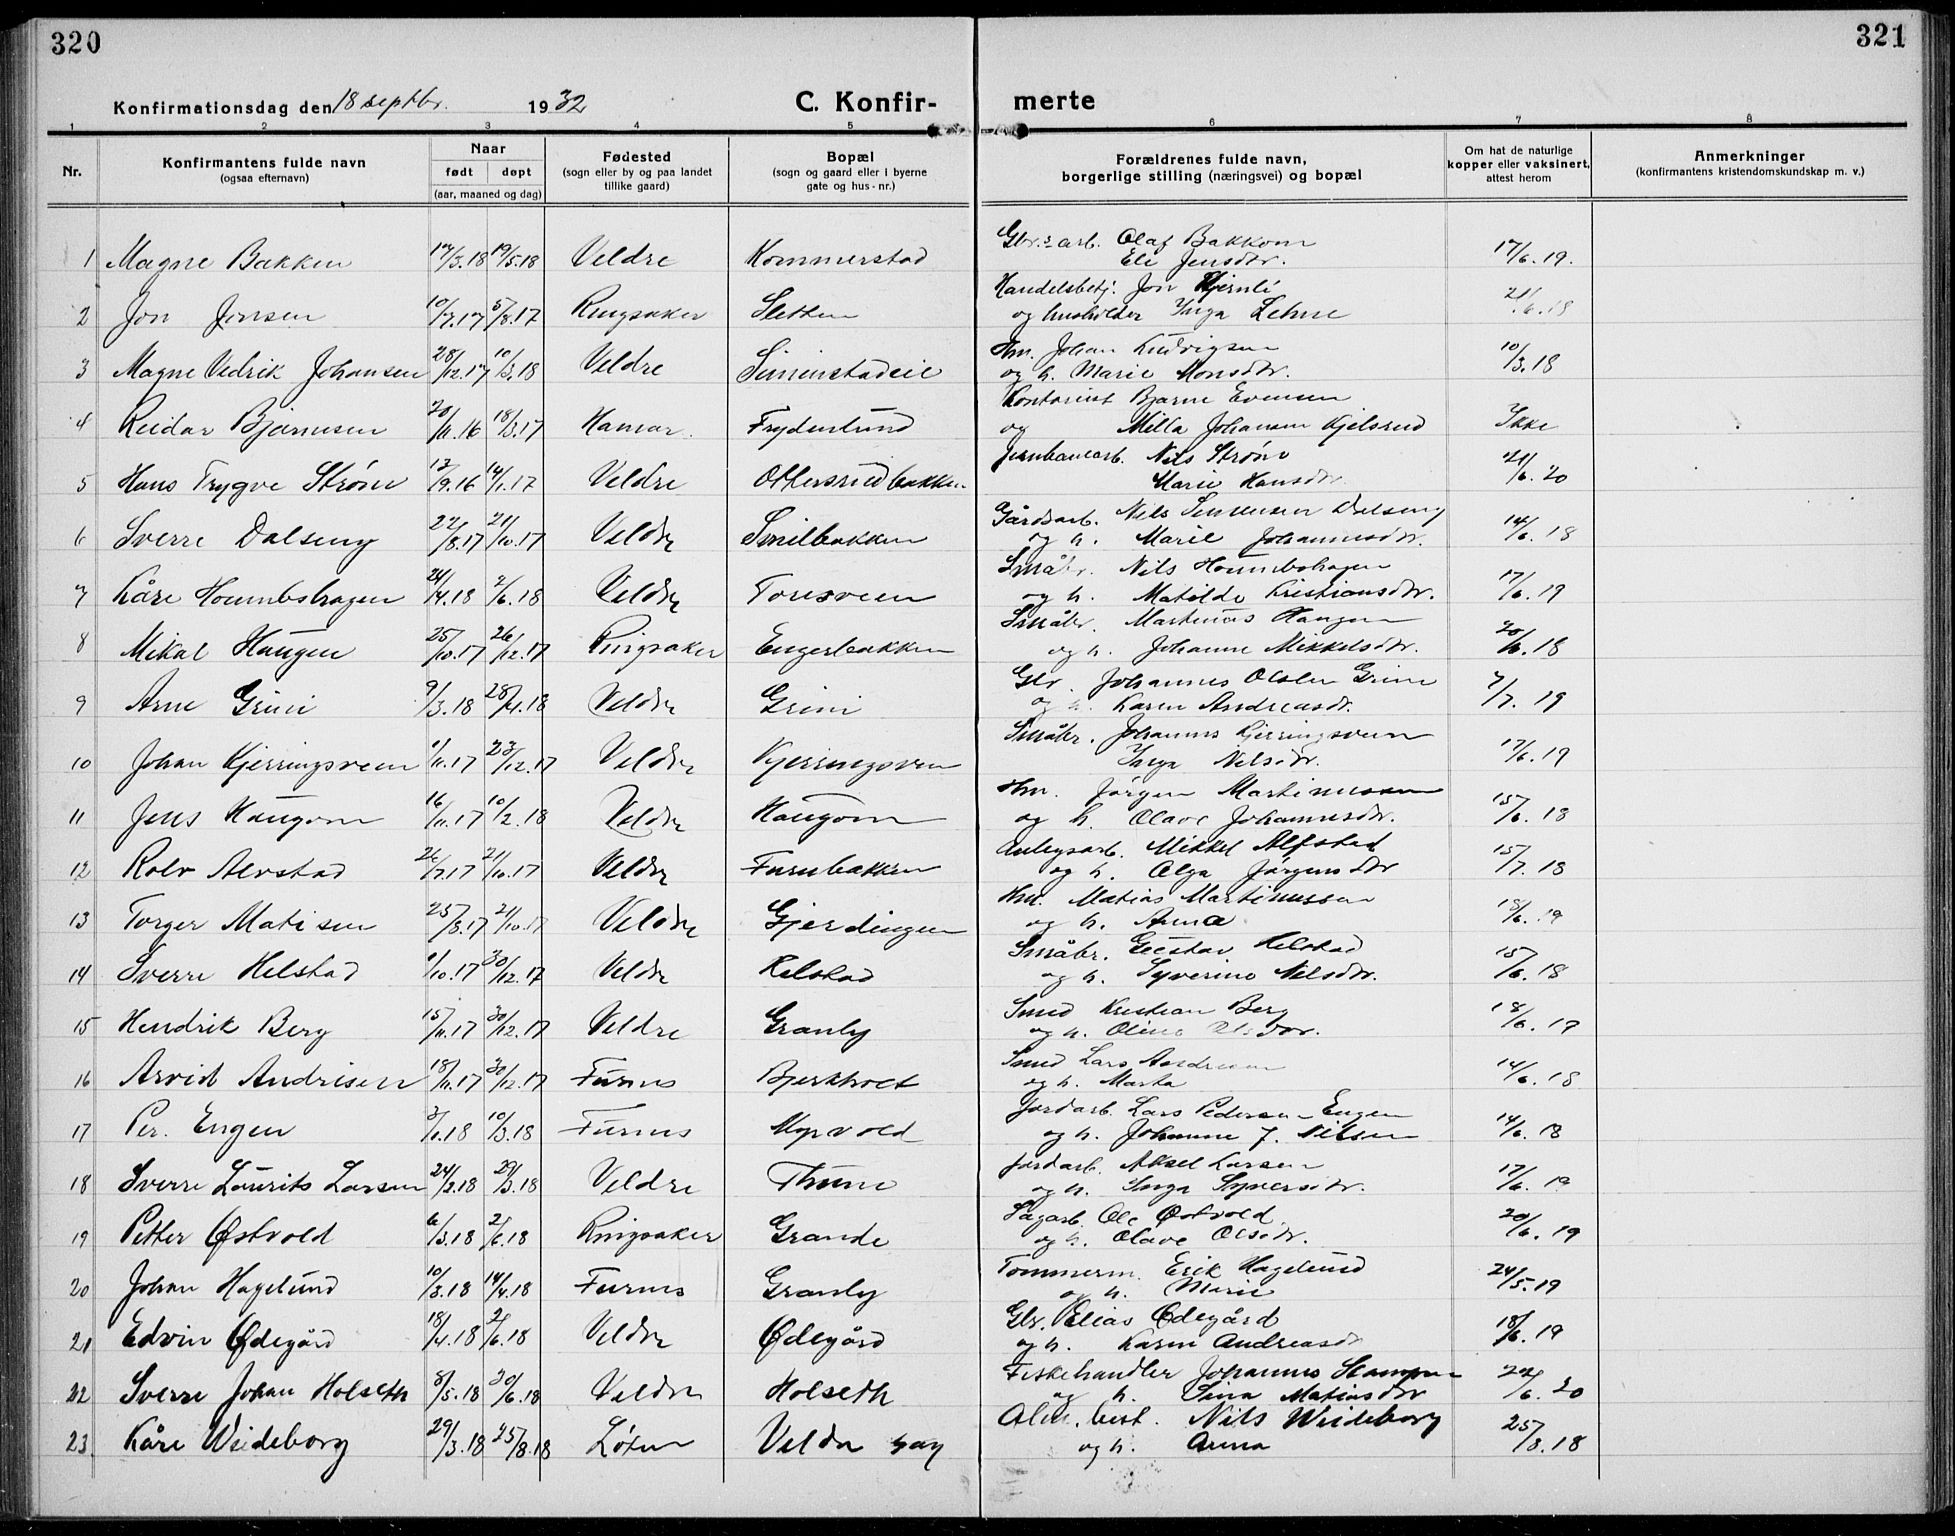 320
321
Konfirmationsdag den 18 septbr. 1932
C. Konfir-
merte
1 2 3 4 5 6 7 8
Nr.
Konfirmantens fulde navn
(ogsaa efternavn)
Naar
født døpt
(aar, maaned og dag)
Fødested
(sogn eller by og paa landet
tillike gaard)
Bopæl
(sogn og gaard eller i byerne
gate og hus-nr.)
Forældrenes fulde navn,
borgerlige stilling (næringsvei) og bopæl
Om hat de naturlige
kopper eller vaksinert,
attest herom
Anmerkninger
(konfirmantens kristendomskundskap m. v.)
1 Magne Bakken 17/3.18 19/5.18 Veldre Kommerstad Gbr.s arb. Olaf Bakkom 17/6.19.
Eli Jensdtr.
2 Jon Jonsen 10/7.17 5/8.17 Ringsaker Sletten Handelsbetj. Jon Hjernli 21/6.18
og husholder Inga Lehne
3 Magne Vedrik Johansen 28/12.17 10/3.18 Veldre Simenstadeie Hm. Johan Ludvigsen 10/3.18
og h. Marie Monsdtr.
4 Reidar Bjarnesen 20/11.16 18/3.17 Hamar. Frydenlund Kontorist Bjarne Evensen Ikke
og Milla Johansen Kjelsrud
5 Hans Trygve Strøm 13/9.16 14/1.17 Veldre Ottersrudbakken Jernbanearb. Nils Strøm 21/6.20
Marie Hansdtr.
6 Sverre Dalseng 22/8.17 21/10.17 Veldre Smilbakken Gårdsarb. Nils Simensen Dalseng 14/6.18
og h. Marie Johannesdtr.
7 Kåre Houmbshagen 24/4.18 2/6.18 Veldre Toresveen Småbr. Nils Houmbshagen 17/6.19
og h. Matilde Kristiansdtr.
8 Mikal Haugen 25/10.17 26/12.17 Ringsaker Engerbakken Småbr. Martinus Haugen 20/6.18
og h. Johanne Mikkelsdtr.
9 Arne Grini 9/3.18 28/4.18 Veldre Grini Gbr. Johannes Olsen Grini 7/7.19
og h. Karen Andreasdr.
10 Johan Kjerringsveen 1/11.17 23/12.17 Veldre Kjerringsveen Småbr. Johannes Kjerringsveen 17/6.19
Inga Nilsdtr.
11 Jens Haugom 16/11.17 10/2.18 Veldre Haugom Hm. Jørgen Martinussen 15/6.18
og h. Olave Johannesdtr.
12 Rolv Alvstad 26/7.17 21/10.17 Veldre Furubakken Anlegsarb. Mikkel Alfstad 15/7.18
og h. Olga Jørgensdtr
13 Torger Matisen 25/8.17 21/10.17 Veldre Gjerdingen Hm. Matias Martinussen 18/6.19
og h. Anna
14 Sverre Helstad 1/10.17 30/12.17 Veldre Helstad Småbr. Gustav Helstad 15/6.18
og h. Syverine Nilsdtr.
15 Hendrik Berg 15/11.17 30/12.17 Veldre Granly Smed Kristian Berg 18/6.19
og h. Oline Olsdtr.
16 Arvid Andrisen 18/11.17 30/12.17 Furnes Bjerkholt Smed Lars Andresen 14/6.18
og h. Marta
17 Per. Engen 3/1.18 10/3.18 Furnes Myrvold Jordarb. Lars Pedersen Engen 14/6.18
og h. Johanne J. Nilsen
18 Sverre Lourits Larsen 24/2.18 29/3.18 Veldre Thune Jordarb. Aksel Larsen 17/6.19
og h. Inga Syversdtr.
19 Petter Østvold 6/3.18 2/6.18 Ringsaker Grande Sagarb. Ole Østvold. 20/6.19
og h. Olave Olsdtr.
20 Johan Hagelund 10/3.18 14/4.18 Furnes Granly Tømmerm. Erik Hagelund 24/5.19
og h. Marie
21 Edvin Ødegård 18/4.18 2/6.18 Veldre Ødegård Gbr. Elias Ødegård 18/6.19
og h. Karen Andreasdr
22 Sverre Johan Holseth 8/5.18 30/6.18 Veldre Holseth Fiskehandler Johannes Stampen 22/6.20
og h. Sina Matiasdtr
23. Kåre Weideborg 29/3.18 25/8.18 Løten Velda Alm. best. Nils Weideborg 25/8.18
og h. Anna